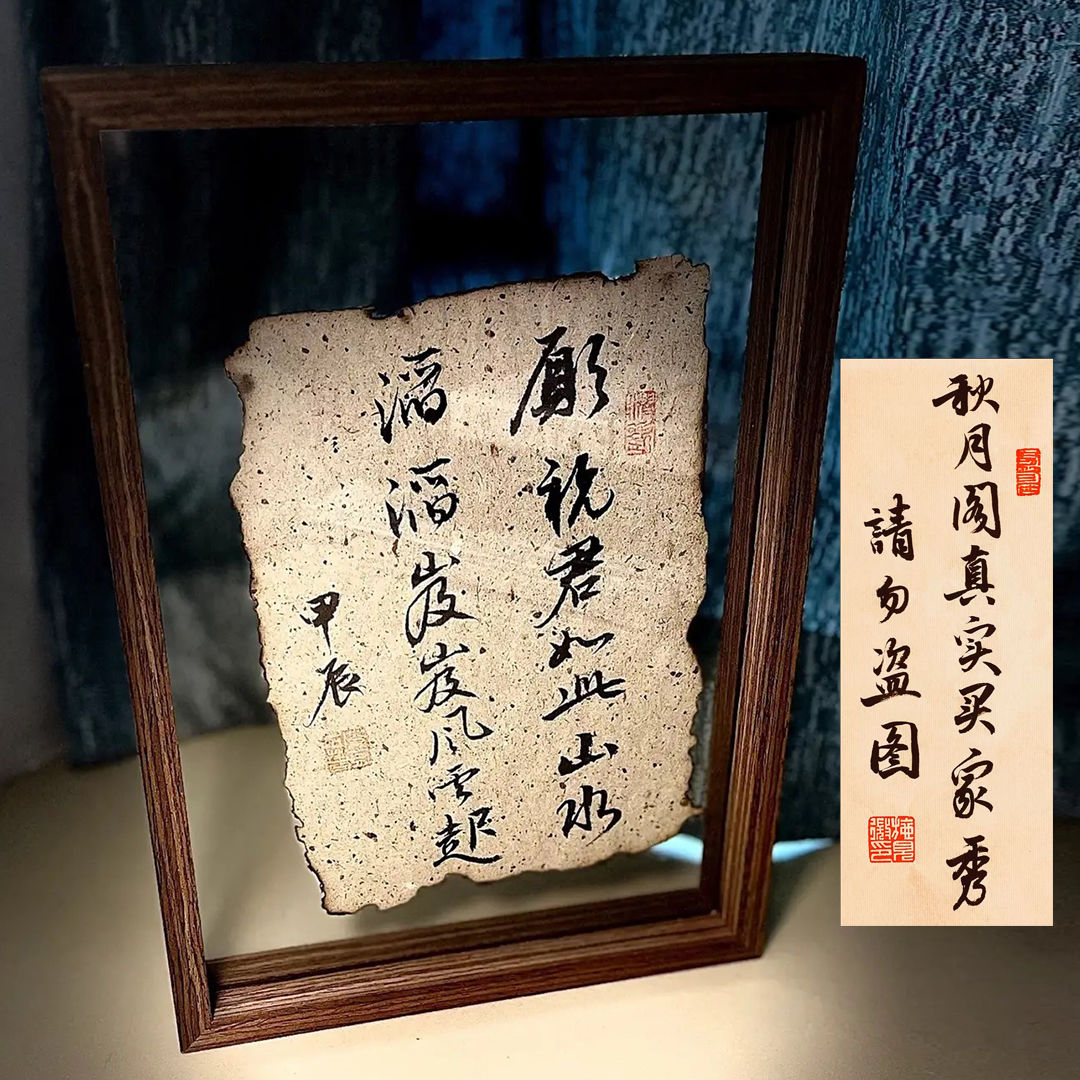 願祝君如此山水
滔滔岌岌風雲起
甲辰
秋月阁真实买家秀
請勿盗图